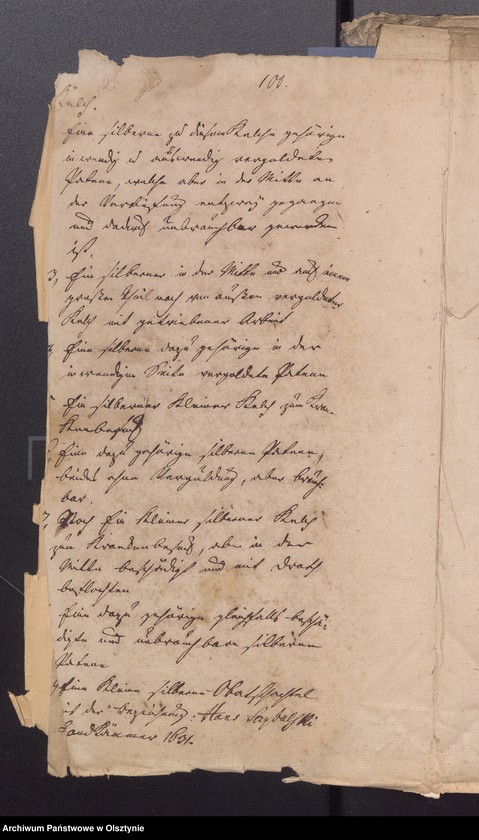 100.
Kelch.
Eine silberne zu diesem Kelche gehörige
inwendig u auswendig vergoldete
Patene, welche aber in der Mitte an
der Vertiefung entzwey gegangen
und dadurch unbrauchbar geworden
ist.
3, Ein silberner in der Mitte und auf einem
großen Theil nach von außen vergoldeter
Kelch mit getriebener Arbeit
Eine silberne dazu gehörige in der
inwendigen Seite vergoldete Patene
Ein silberner kleiner Kelch zum Kran-
kenbesuch
Eine dazu gehörige silberne Patene,
beides ohne Vergoldung, aber brauch-
bar.
7, Noch Ein kleiner silberner Kelch
zum Krankenbesuch, aber in der
Mitte beschädigt und mit Drath
beflochten
Eine dazu gehörige gleichfalls beschä-
digte und unbrauchbare silberne
Patene
Eine kleine silberne Oblatschachtel
mit der Bezeichnung: Hans
Landkämmer 1631.
Archiwum Państwowe w Olsztynie